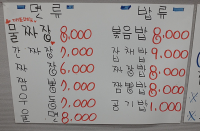 면류
물짜장 8.000
간짜장 7.000
짜장 6.000
짬뽕 7.000
우동 7.000
울면 8.000
밥류
볶음밥 8.000
잡채밥 9.000
짜장밥 8.000
짬뽕밥 8.000
공기밥 1.000